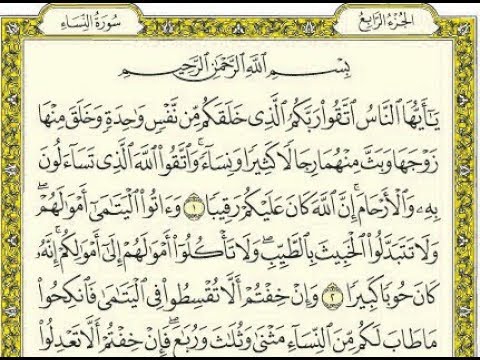 الجزء الرابع
سورة النساء
بِسْمِ ٱللَّهِ ٱلرَّحْمَٰنِ ٱلرَّحِيمِ
يَٰٓأَيُّهَا ٱلنَّاسُ ٱتَّقُوا۟ رَبَّكُمُ ٱلَّذِى خَلَقَكُم مِّن نَّفْسٍ وَٰحِدَةٍ وَخَلَقَ مِنْهَا
زَوْجَهَا وَبَثَّ مِنْهُمَا رِجَالًا كَثِيرًا وَنِسَآءً ۚ وَٱتَّقُوا۟ ٱللَّهَ ٱلَّذِى تَسَآءَلُونَ
بِهِۦ وَٱلْأَرْحَامَ ۚ إِنَّ ٱللَّهَ كَانَ عَلَيْكُمْ رَقِيبًا ١ وَءَاتُوا۟ ٱلْيَتَٰمَىٰٓ أَمْوَٰلَهُمْ ۖ
وَلَا تَتَبَدَّلُوا۟ ٱلْخَبِيثَ بِٱلطَّيِّبِ ۖ وَلَا تَأْكُلُوٓا۟ أَمْوَٰلَهُمْ إِلَىٰٓ أَمْوَٰلِكُمْ ۚ إِنَّهُۥ
كَانَ حُوبًا كَبِيرًا ٢ وَإِنْ خِفْتُمْ أَلَّا تُقْسِطُوا۟ فِى ٱلْيَتَٰمَىٰ فَٱنكِحُوا۟
مَا طَابَ لَكُم مِّنَ ٱلنِّسَآءِ مَثْنَىٰ وَثُلَٰثَ وَرُبَٰعَ ۖ فَإِنْ خِفْتُمْ أَلَّا تَعْدِلُوا۟